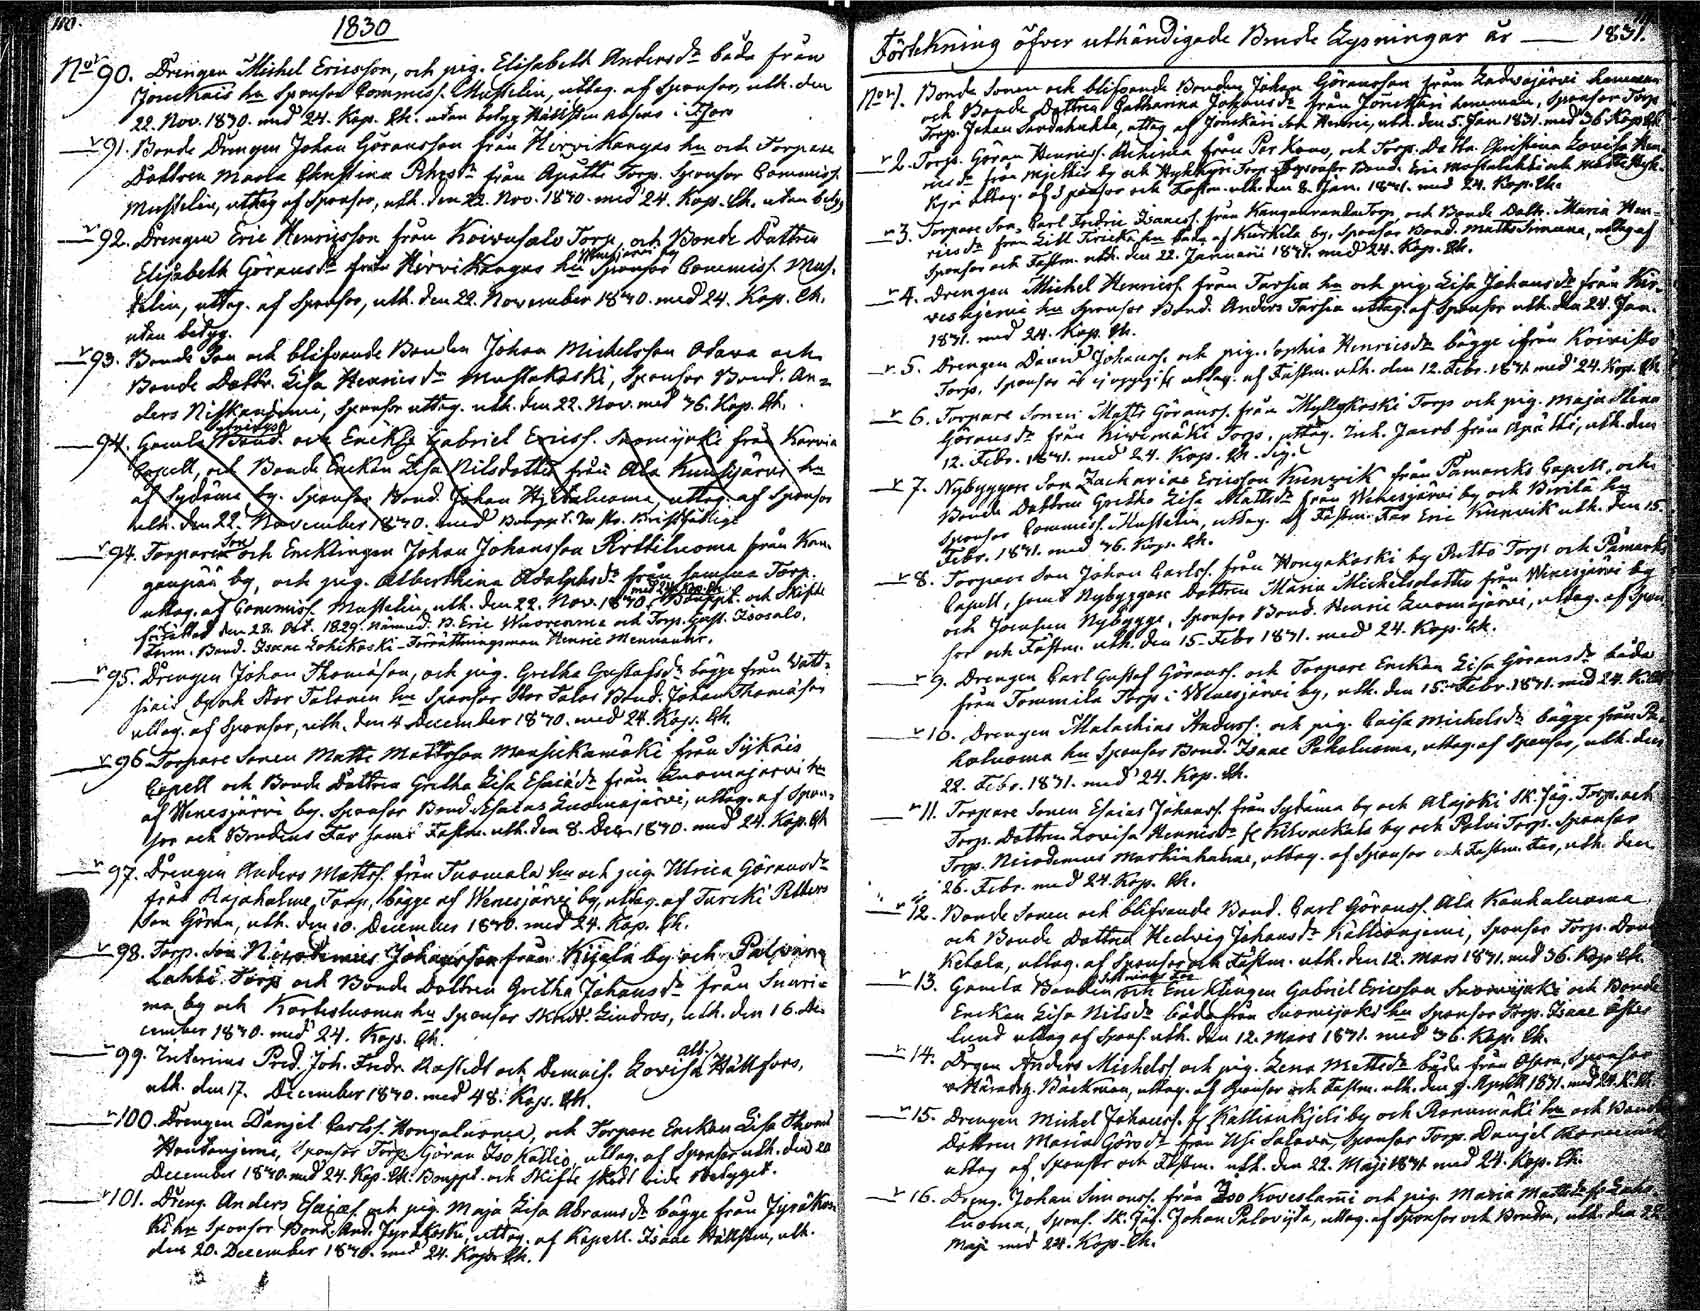 110.
1830
No 90. Drengen Michel Ericsson, och pig. Elisabeth Andersdr båda från
Jonckais hn Sponsor Commiss. Musselin, uttag. af Sponsor, uth. den
22. Nov. 1830. med 24. Kop. Ch. utan betyg Hällsten absens i
91. Bonde Drengen Johan Göransson från Hirvikangas hn och Torpare
Dottren Maria Christina Petersdr från Apätti Torp. Sponsor Commiss.
Musselin, uttag af Sponsor, uth. den 22. Nov. 1830. med 24. Kop. Ch. utan betyg
92. Drengen Eric Henricsson från Koivusalo Torp, och Bonde Dottren
Elisabeth Göransdr från Hirvikangas hn Sponsor Commiss. Mus-
selin, uttag. af Sponsor, uth. den 22. November 1830. med 24. Kop. Ch.
utan betyg.
93. Bonde Son och blifvande Bonden Johan Michelsson Otava och
Bonde Dottr. Lisa Henricsdr Mustakoski, Sponsor Bond. An-
ders Niskaniemi, Sponsor uttag. uth. den 22. Nov. med 36. Kop. Ch.
94. Gamla Bond. och Enklg Gabriel Ericss. Suomijoki från Karvia
Capell, och Bonde Enckan Lisa Nilsdotter från Ala Kuuhijärvi hn
af Sydäma by. Sponsor Bond. Johan Hjetaluoma, uttag. af Sponsor
uth. den 22. November 1830. med Bouppt.
94. Torpare Son och Encklingen Johan Johansson Perttiluoma från Kan-
gaspää by, och pig. Alberthina Adolphsdr från samma Torp,
uttag. af Commiss. Musselin, uth. den 22. Nov. 1830. med 24. Kop. Ch. Bouppt. och Skifte
författad den 28. Oct. 1829. Nämnd. B. Eric Wuorenmaa och Torp. Gust. Isosalo,
Förm. Bond. Isaac Lohikoski - Förrättningsman Henric Mennander.
95. Drengen Johan Thomasson, och pig. Gretha Gustafsdr bägge från Vatt-
siais by och Stor Talonen hn Sponsor Stor Talos Bond. Johan Thomasson
uttag. af Sponsor, uth. den 4 December 1830. med 24. Kop. Ch.
96 Torpare Sonen Matts Mattsson Mansikamäki från Sijkais
Capell och Bonde Dottren Gretha Lisa Esaiædr från Luomajärvi hn
af Wenesjärvi by. Sponsor Bond. Esaias Luomajärvi, uttag. af Spon-
sor och Brudens Far samt Fästm. uth. den 8. Decr 1830. med 24. Kop. Ch
97. Drengen Anders Mattss. från Tuomala hn och pig. Ulrica Göransdr
från Rajahalme Torp, bägge af Wenesjärvi by, uttag. af Turcki Petters
Son Göran, uth. den 10. December 1830. med 24. Kop. Ch.
98. Torp. Son Nicodemus Johansson från Kyjälä by och Palvian
Lahti Torp och Bonde Dottren Gretha Johansdr från Suuri-
ma by och Kortesluoma hn Sponsor Skrädd. Lindros, uth. den 16. De-
cember 1830. med 24. Kop. Ch.
99. Interims Pred. Joh. Fredr. Rostedt och Demois. Lovisa alb. Hällfors,
uth. den 17. December 1830. med 48. Kop. Ch.
100. Drengen Danjel Carlss. Hongaluoma, och Torpare Enckan Lisa Thomdr
Hautaniemi, Sponsor Torp. Göran Iso Kallio, uttag. af Sponsor uth. den 20
December 1830. med 24. Kop. Ch. Bouppt. och Skifte skedt sive obetyget.
101. Dreng. Anders Esaias. och pig. Maja Lisa Abramsdr bägge från Jyräkos-
ki hn Sponsor Bond. And. Jyräkoski, uttag. af Kapell. Isaac Hällsten, uth.
den 20. December 1830. med 24. Kop. Ch.
Förtekning öfver uthändigade Brude Lysningar år 1831.
No 1. Bonde Sonen och blifvande Bonden Johan Göransson från Ladvajärvi hemman
och Bonde Dottren Catharina Johansdr från Jonckäri hemman, Sponsor Torp
Torp. Johan Sandahuhta, uttag af Jonckäri Son Henric, uth. den 5. Jan 1831. med 36 Kop. Ch.
2. Torp. Göran Henricss. Achima från Perkono, och Torp. Dottr. Christina Lovisa Hen-
ricsdr från Mjettis by och Torp Sponsor Bond. Eric
Kyrö uttag. af Sponsor och Fästm. uth. den 8. Jan. 1831. med 24. Kop. Ch.
3. Torpare Son, Carl Fredric Isaacss. från Kanganranda Torp, och Bonde Dottr. Maria Hen-
ricsdr från Lill Tericka hn bägge af Kurkela by, Sponsor Bond. Matts Timana, uttag af
Sponsor och Fästm. uth. den 22. Januarii 1831. med 24. Kop. Ch.
4. Drengen Michel Henricss. från Tarsia hn och pig. Lisa Johansdr från Kir-
vesniemi hn Sponsor Bond. Anders Tarsia uttag. af Sponsor uth. den 24. Jan.
1831. med 24. Kop. Ch.
5. Drengen David Johanss. och pig. Sophia Henricsdr bägge ifrån Koivisto
Torp, Sponsor är ej uppgift uttag. af Fästm. uth. den 12. Febr. 1831. med 24. Kop. Ch
6. Torpare Sonen Matts Göranss. från Myllykoski Torp och pig. Maja Stina
Göransdr från Kivimäki Torp, uttag. Ink. Jacob från Apätti, uth. den
12. Febr. 1831. med 24. Kop. Ch.
7. Nybyggare Son Zacharias Ericsson Kuuvik från Påmarcks Capell, och
Bonde Dottren Gretha Lisa Mattsdr från Wenesjärvi by och Perilä hn
Sponsor Commiss. Musselin, uttag. af Fästm. Far Eric Kuuvik uth. den 15.
Febr. 1831. med 36. Kop. Ch.
8. Torpare Son Johan Carlss. från Hongakoski by Petto Torp och Påmarks
Capell, samt Nybyggare Dottren Maria Michelsdotter från Wenesjärvi by
och Jorasen Nybygge, Sponsor Bond. Henric Luomajärvi, uttag. af Spon-
sor och Fästm. uth. den 15. Febr 1831. med 24. Kop. Ch.
9. Drengen Carl Gustaf Göranss. och Torpare Enckan Lisa Göransdr båda
från Tommila Torp i Wenesjärvi by, uth. den 15. Febr. 1831. med 24. K. Ch
10. Drengen Malachias Anderss. och pig. Caisa Michelsdr bägge från Pa-
kaluoma hn Sponsor Bond. Isaac Pakaluoma, uttag. af Sponsor, uth. den
22. Febr. 1831. med 24. Kop. Ch.
11. Torpare Sonen Esaias Johanss. från Sydäma by och Alajoki Sk. Jäg. Torp. och
Torp. Dottren Lovisa Henricsdr fr. Kilvackala by och Polvi Torp. Sponsor
Torp. Nicodemus Markinhalme, uttag. af Sponsor och Fästm. Far, uth. den
26. Febr. med 24. Kop. Ch.
12. Bonde Sonen och blifvande Bond. Carl Göranss. Ala Kauhaluoma
och Bonde Dottren Hedvig Johansdr Kallioniemi, Sponsor Torp. David
Ketola, uttag. af Sponsor och Fästm. uth. den 12. Mars 1831. med 36. Kop. Ch.
13. Gamla Bonden och Encklingen Gabriel Ericsson Suomijoki och Bonde
Enckan Lisa Nilsdr båda från Suomijoki hn Sponsor Torp. Isaac Öster
lund uttag af Spons. uth. den 12. Mars 1831. med 36. Kop. Ch.
14. Drgen Anders Michelss. och pig. Lena Mattsdr båda från Ojara, Sponsor
v. Häradsh. Bäckman, uttag. af Sponsor och Fästm. uth. den 9. April 1831. med 24. K. Ch.
15. Drengen Michel Johanss. fr. Kallionkjeli by och Ronumäki hn och Bonde
Dottren Maria Görsdr från Ysi Salava, Sponsor Torp. Danjel
uttag af Sponsor och Fästm. uth. den 22. Maji 1831 med 24. Kop. Ch.
16. Dreng. Johan Simonss. från Iso Koveslammi och pig. Maria Mattsdr fr.
luoma, Spons. Sk. Jäg. Johan Palovijta, uttag. af Sponsor och Bruden, uth. den 22
Maji med 24. Kop. Ch.